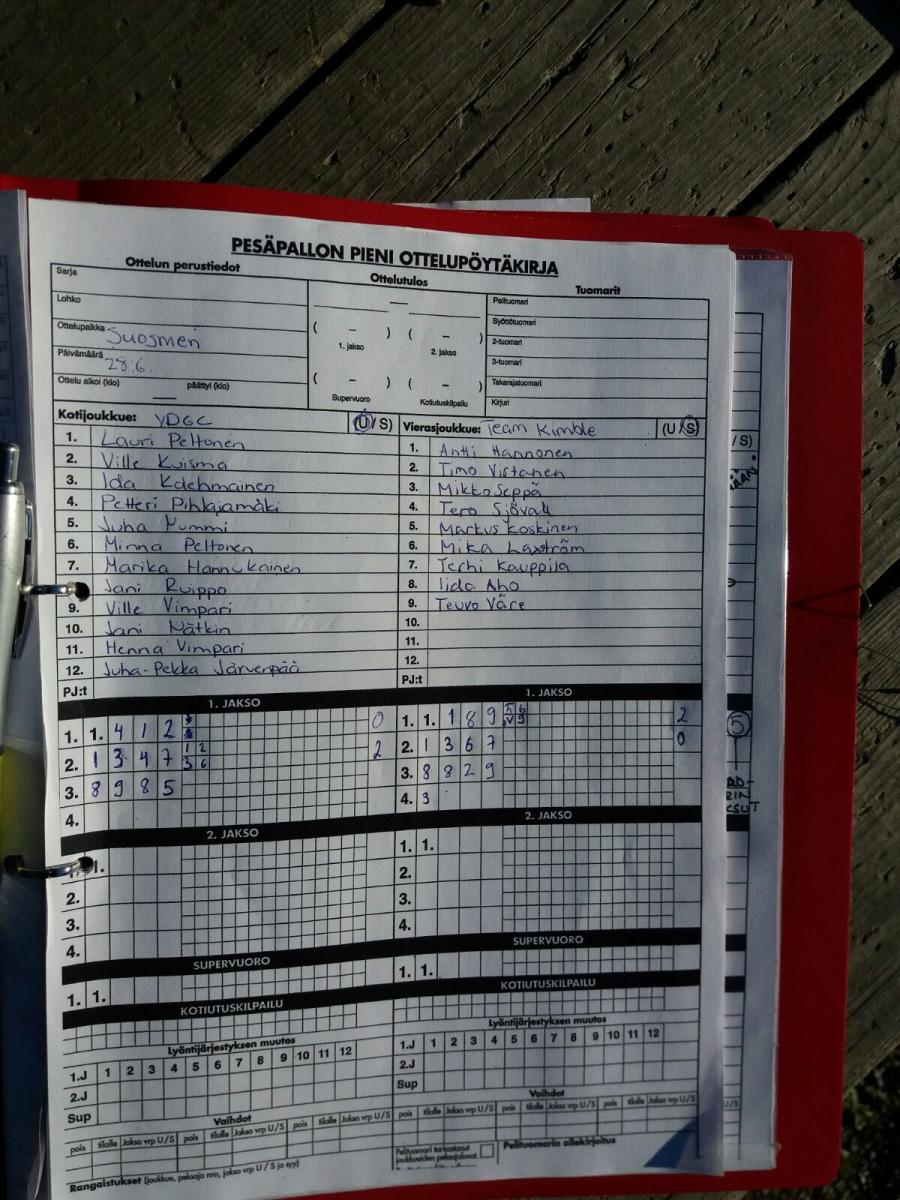 PESÄPALLON PIENI OTTELUPÖYTÄKIRJA
Ottelun perustiedot Ottelutulos Tuomarit
Sarja
Lohko
Ottelupaikka Suosmeri
Päivämäärä 28.6.
Ottelu alkoi (klo) päättyi (klo)
( – ) ( – )
1. jakso 2. jakso
( – ) ( – )
Supervuoro Kotiutuskilpailu
Pelituomari
Syöttötuomari
2-tuomari
3-tuomari
Takarajatuomari
Kirjuri
Kotijoukkue: YDGC (U/S)
1. Lauri Peltonen
2. Ville Kuisma
3. Ida
4. Petteri Pihlajamäki
5. Juha Nummi
6. Minna Peltonen
7. Marika Hannukainen
Jani Ruippo
9. Ville Vimpari
10. Jani Nätkin
11. Henna Vimpari
12. Juha-Pekka Järvenpää
PJ:t
Vierasjoukkue: Team Kimble (U/S)
1. Antti Hannonen
2. Timo Virtanen
3. Mikko Seppä
4. Tero Sjövall
5. Markus Koskinen
6. Mika Laxström
7. Terhi Kauppila
8. Iida Aho
9. Teuvo Väre
10.
11.
12.
PJ:t
1. JAKSO
1. 1. 4 1 2 0
2. 1 3 4 7 1 2 3 6 2
3. 8 9 8 5
4.
1. JAKSO
1. 1. 1 8 9 5 6 V 9 2
2. 1 3 6 7 0
3. 8 8 2 9
4. 3
2. JAKSO
1.
2.
3.
4.
2. JAKSO
1. 1.
2.
3.
4.
SUPERVUORO SUPERVUORO
1. 1. 1. 1.
KOTIUTUSKILPAILU KOTIUTUSKILPAILU
Lyöntijärjestyksen muutos
1.J 1 2 3 4 5 6 7 8 9 10 11 12
2.J
Sup
Lyöntijärjestyksen muutos
1.J 1 2 3 4 5 6 7 8 9 10 11 12
2.J
Sup
Vaihdot
pois tilalle Jakso vrp U/S pois tilalle Jakso vrp U/S pois tilalle Jakso vrp U/S
Vaihdot
pois tilalle Jakso vrp U/S pois tilalle Jakso vrp U/S pois tilalle Jakso vrp U/S
Pelituomari tarkastanut joukkueiden pelaajaluvat
Pelituomarin allekirjoitus
Rangaistukset (joukkue, pelaaja nro, jakso vrp U/S ja syy)
/S)
5